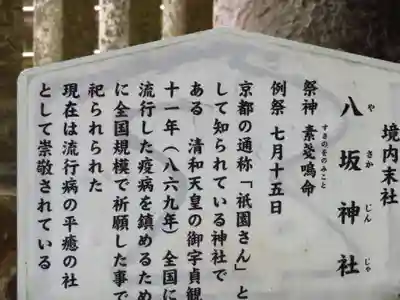 境内末社
八坂神社
や さか じん じゃ
祭神 素戔嗚命
すさのをのみこと
例祭 七月十五日
京都の通称「祇園さん」と
して知られている神社で
ある 清和天皇の御宇貞観
十一年（八六九年）全国に
流行した疫病を鎮めるため
に全国規模で祈願した事で
祀られられた
現在は流行病の平癒の社
として崇敬されている